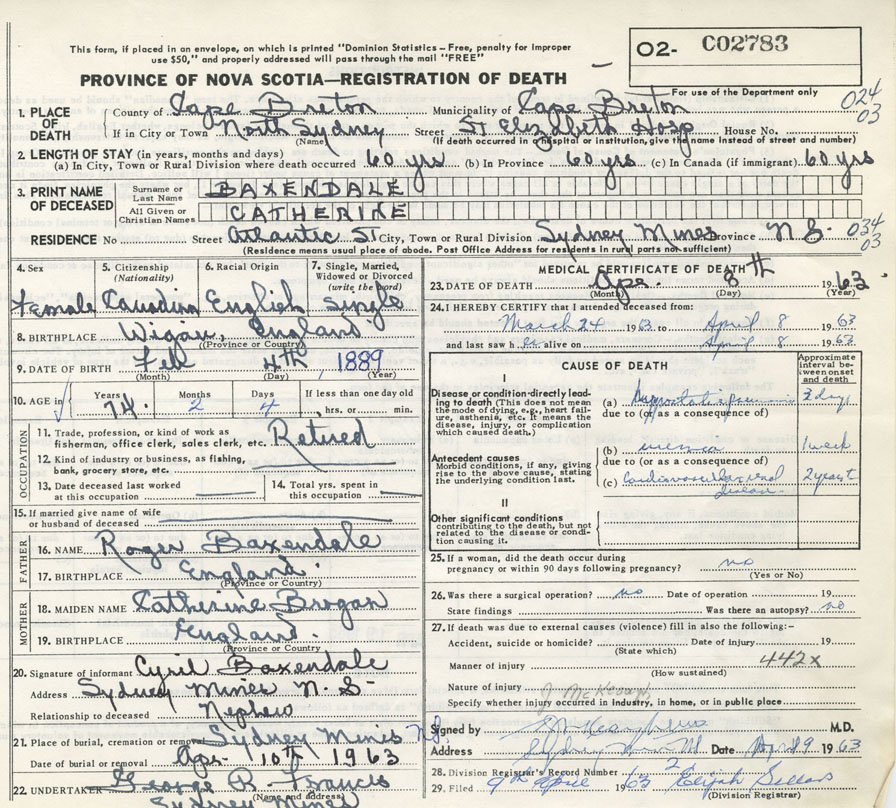 This form, if placed in an envelope, on which is printed "Dominion Statistics – Free, penalty for improper
use $50," and properly addressed will pass through the mail "FREE"
O2- C02783
PROVINCE OF NOVA SCOTIA—REGISTRATION OF DEATH
For use of the Department only
024
03
1. PLACE OF DEATH
County of Cape Breton Municipality of Cape Breton
If in City or Town North Sydney Street St Elizabeth Hosp House No.
(Name) (If death occurred in a hospital or institution, give the name instead of street and number)
2. LENGTH OF STAY (in years, months and days)
(a) In City, Town or Rural Division where death occurred 60 yrs (b) In Province 60 yrs (c) In Canada (if immigrant) 60 yrs
3. PRINT NAME OF DECEASED
Surname or Last Name BAXENDALE
All Given or Christian Names CATHERINE
RESIDENCE No Street Atlantic St City, Town or Rural Division Sydney Mines Province N S. 034
03
(Residence means usual place of abode. Post Office Address for residents in rural parts not sufficient)
4. Sex 5. Citizenship (Nationality) 6. Racial Origin 7. Single, Married, Widowed or Divorced (write the word)
Female Canadian English Single
8. BIRTHPLACE Wigan, England
(Province or Country)
9. DATE OF BIRTH Feb 4th, 1889
(Month) (Day) (Year)
10. AGE in Years 74 Months 2 Days 4 If less than one day old
hrs. or min.
OCCUPATION
11. Trade, profession, or kind of work as fisherman, office clerk, sales clerk, etc. Retired
12. Kind of industry or business, as fishing, bank, grocery store, etc.
13. Date deceased last worked at this occupation
14. Total yrs. spent in this occupation
15. If married give name of wife or husband of deceased
FATHER
16. NAME Roger Baxendale
17. BIRTHPLACE England.
(Province or Country)
MOTHER
18. MAIDEN NAME Catherine Brogan
19. BIRTHPLACE England.
(Province or Country
20. Signature of informant Cyril Baxendale
Address Sydney Mines N. S-
Relationship to deceased Nephew
21. Place of burial, cremation or removal Sydney Mines N.S.
Date of burial or removal Apr- 10th 1963
22. UNDERTAKER George R. Francis
(Name and address)
Sydney Mines
MEDICAL CERTIFICATE OF DEATH
23. DATE OF DEATH Apr. 8th 1963
(Month) (Day) (Year)
24. I HEREBY CERTIFY that I attended deceased from:
March 24 1963 to April 8 1963
and last saw h alive on April 8 1963
CAUSE OF DEATH
Approximate interval between onset and death
I
Disease or condition directly leading to death (This does not mean the mode of dying, e.g., heart failure, asthenia, etc. It means the disease, injury, or complication which caused death.)
(a) Hypostatic pneumonia 3 days
due to (or as a consequence of)
Antecedent causes
Morbid conditions, if any, giving rise to the above cause, stating the underlying condition last.
(b) uremia 1 week
due to (or as a consequence of)
(c) Cardiovascular renal disease 2 years +
II
Other significant conditions
contributing to the death, but not related to the disease or condition causing it.
25. If a woman, did the death occur during pregnancy or within 90 days following pregnancy? no
(Yes or No)
26. Was there a surgical operation? no Date of operation 19
State findings Was there an autopsy? no
27. If death was due to external causes (violence) fill in also the following:–
Accident, suicide or homicide? Date of injury 19
(State which)
Manner of injury 442x
(How sustained)
Nature of injury
J McKeough
Specify whether injury occurred in industry, in home, or in public place
Signed by M.D.
Address Sydney Mines NS. Date April 9 1963
28. Division Registrar's Record Number 2
29. Filed 9th April 1963 Elijah Sellars
(Division Registrar)